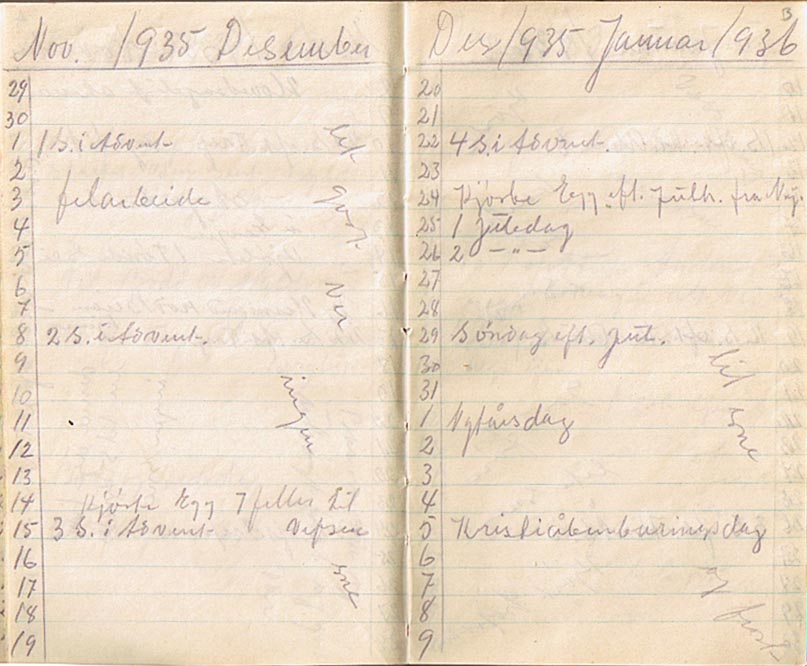 Nov. 1935 Desember
29
30
1 1 S. i Advent
2
3 felarbeide
4
5
6
7
8 2 S. i Advent.
9
10
11
12
13
14 Kjörte Egg 7 feller til
15 3 S. i Advent Vefsen
16
17
18
19
Ver
ingen
sne
Des 1935 Januar 1936
13
20
21
22 4 S. i Advent.
23
24 Kjörte Egg eft. Jultr. fra
25 1 Juledag
26 2 — " —
27
28
29 Söndag eft. Jul.
30
31
1 Nytårsdag
2
3
4
5 Kristiåbenbaringsdag
6
7
8
9
lit sne
og frost